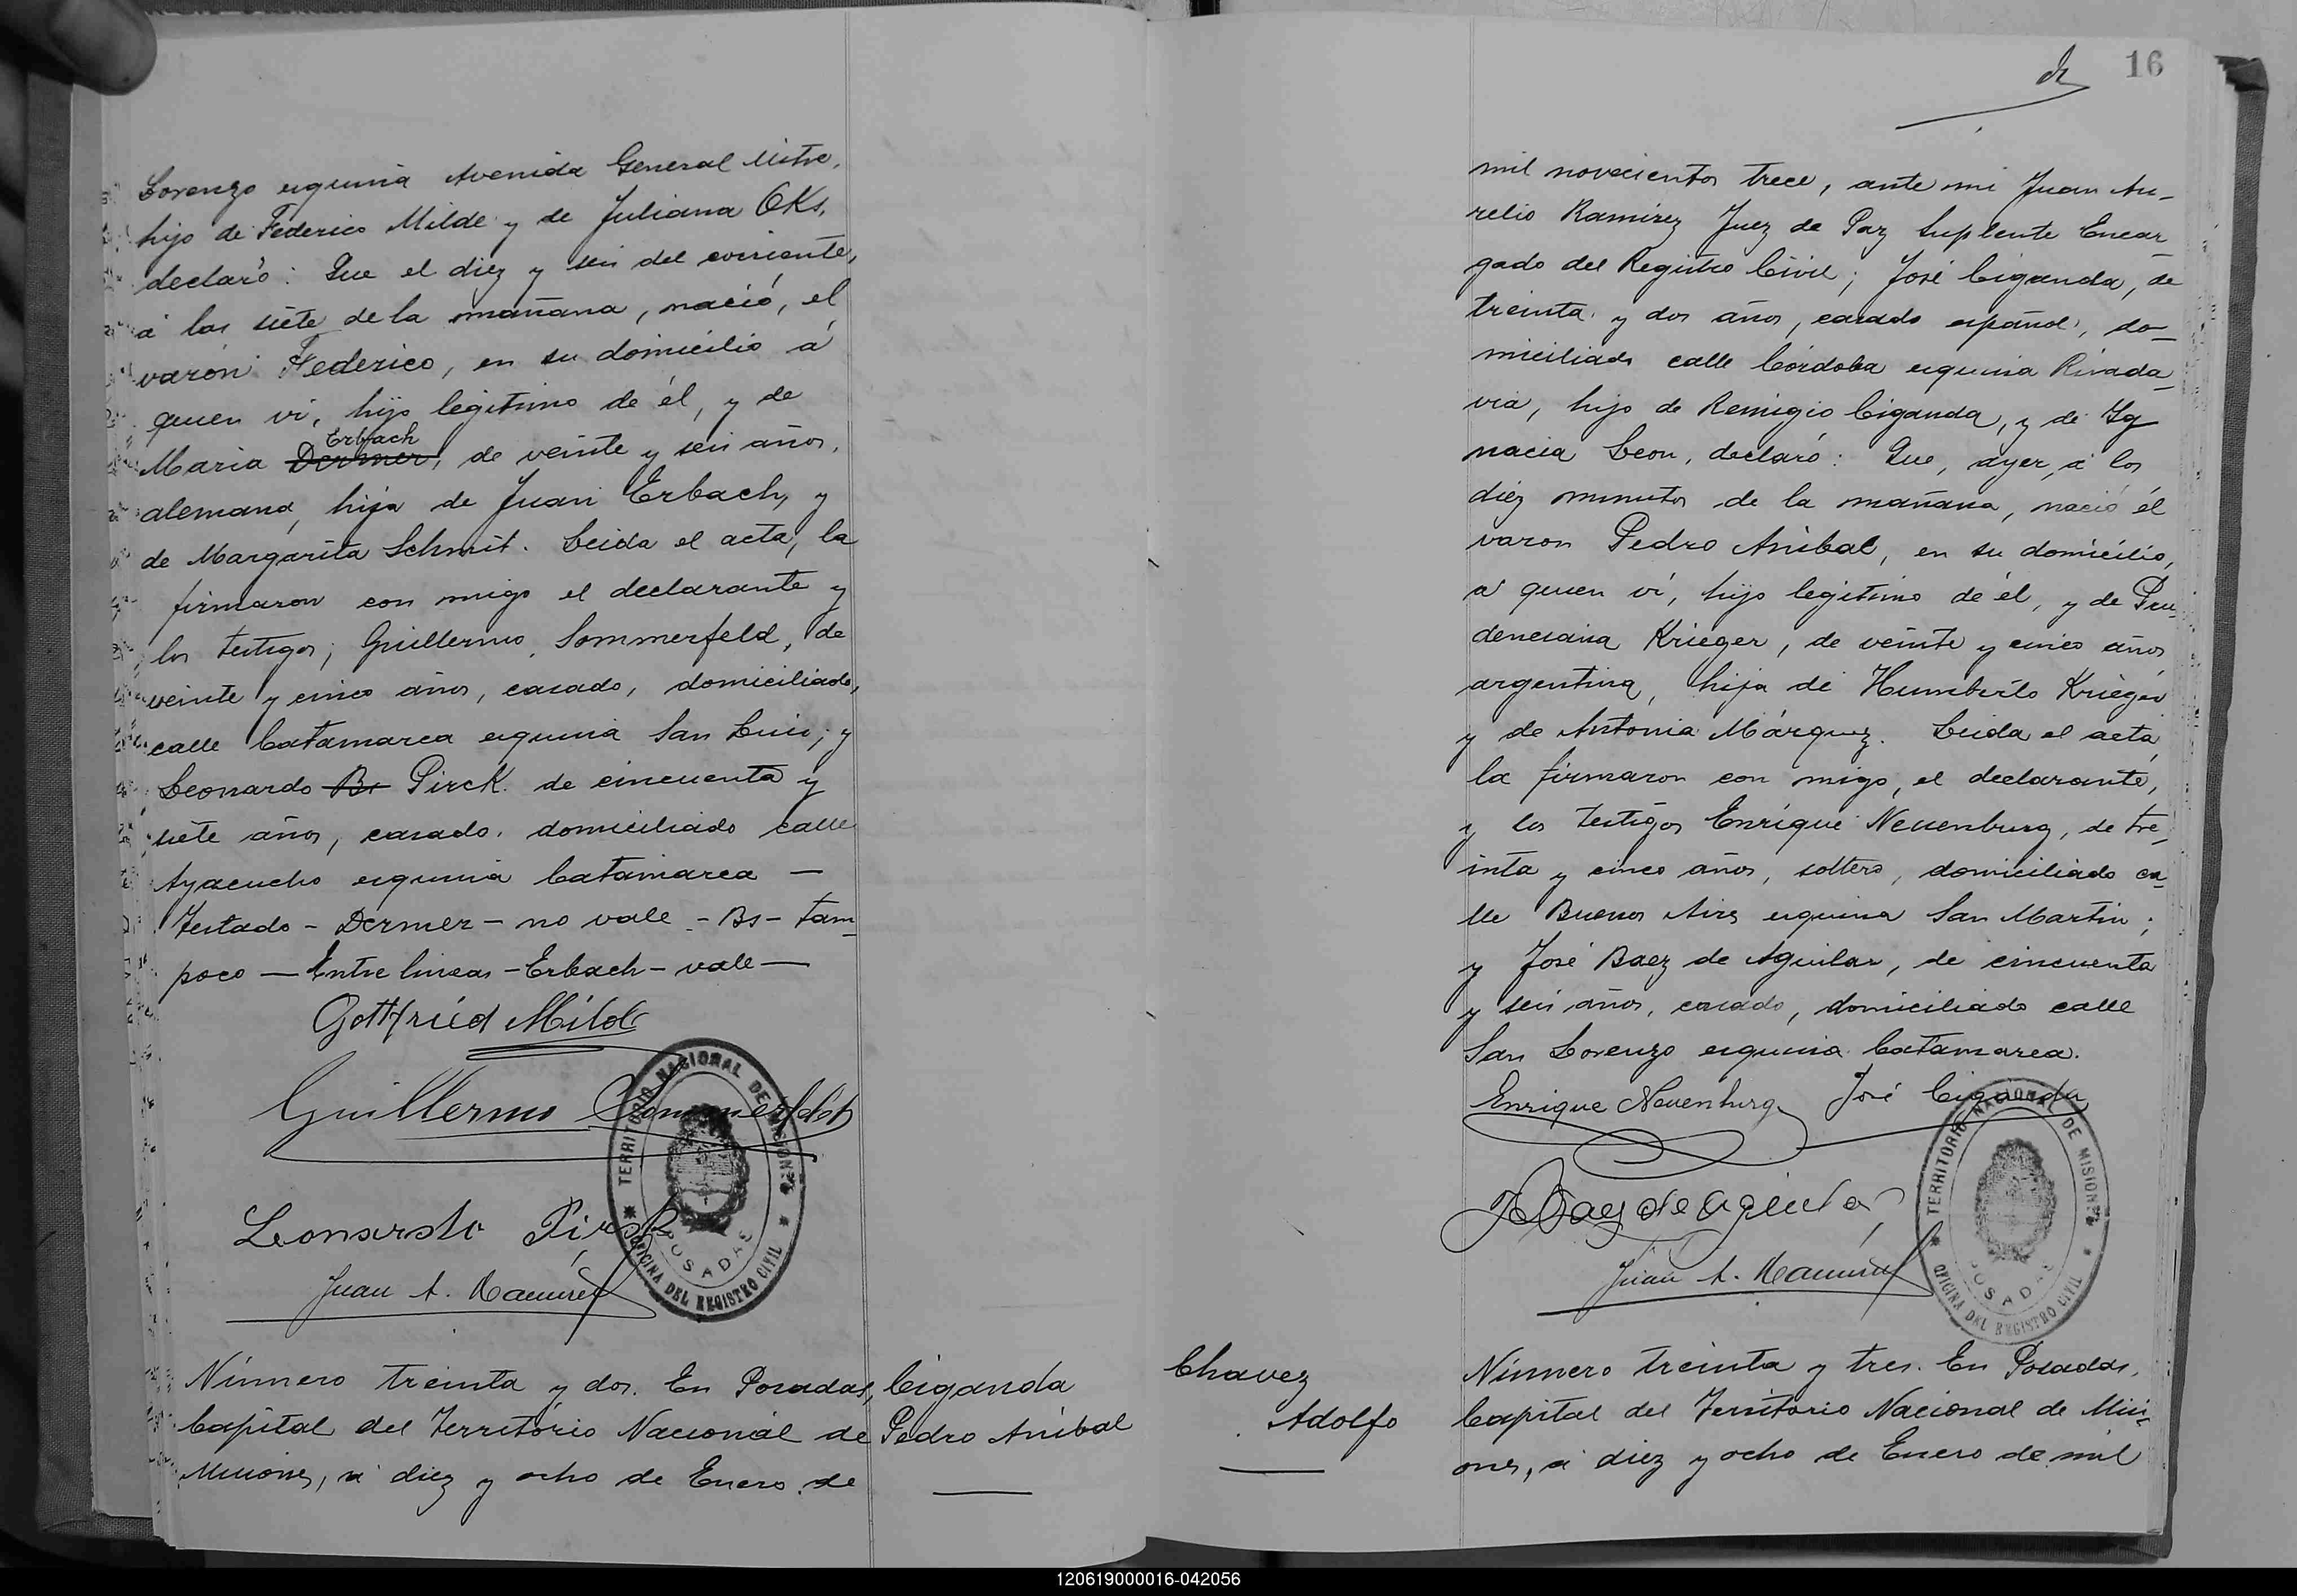 Lorenzo esquina Avenida General Mitre,
hijo de Federico Milde y de Juliana OKs,
declaró: Que el diez y seis del corriente,
á las siete de la mañana, nació, el
varón Federico, en su domicilio á
quien ví, hijo legítimo de él, y de
Erbach
Maria Dermer, de veinte y seis años,
alemana, hija de Juan Erbach, y
de Margarita Schmit. Leida el acta, la
firmaron con migo el declarante y
los testigos; Guillermo Sommerfeld, de
veinte y cinco años, casado, domiciliado,
calle Catamarca esquina San Luis; y
Leonardo Bs Pirck. de cincuenta y
siete años, casado, domiciliado calle
Ayacucho esquina Catamarca —
Testado - Dermer - no vale - Bs - tam_
poco — Entre lineas - Erbach - vale —
Gottfried Milde
Guillermo Sommerfeldt
Leonardo Pirck
Juan A. Ramírez
TERRITORIO NACIONAL DE MISIONES
OFICINA DEL REGISTRO CIVIL
POSADAS
Número treinta y dos. En Posadas,
Capital del Território Nacional de
Misiones, á diez y ocho de Enero de
Ciganda
Pedro Aníbal
16
mil novecientos trece, ante mi Juan Au_
relio Ramírez Juez de Paz Suplente Encar_
gado del Registro Civil; José Ciganda, de
treinta y dos años, casado español, do_
miciliado calle Córdoba esquina Rivada_
via, hijo de Remigio Ciganda, y de Ig_
nacia Leon, declaró: Que, ayer, á los
diéz minutos de la mañana, nació él
varon Pedro Anibal, en su domicilio,
a quien ví, hijo legítimo de él, y de Pru_
denciana Krieger, de veinte y cinco años
argentina, hija de Humberto Krieger
y de Antonia Márquez. Leida el acta,
la firmaron con migo, el declarante,
y los testigos Enrique Neuenburg, de tre_
inta y cinco años, soltero, domiciliado ca_
lle Buenos Aires esquina San Martin;
y José Baez de Aguilar, de cincuenta
y seis años, casado, domiciliado calle
San Lorenzo esquina Catamarca.
Enrique Neuenburg José Ciganda
J Baez de Aguilar
Juan A. Ramírez
TERRITORIO NACIONAL DE MISIONES
OFICINA DEL REGISTRO CIVIL
POSADAS
Chavez
Adolfo
Número treinta y tres. En Posadas,
Capital del Territorio Nacional de Misi_
ones, á diez y ocho de Enero de mil
120619000016-042056